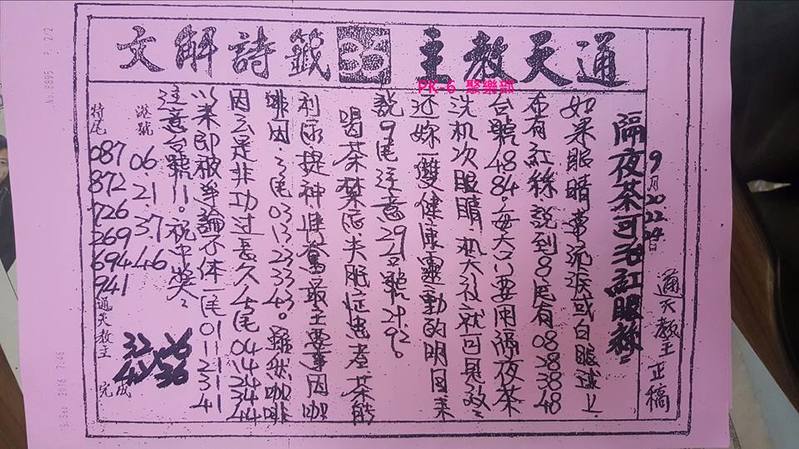 通天教主36籤詩解文
PK-6 聚樂部
9月20.22.24日 通天教主正稿
隔夜茶可治紅眼絲
如果眼睛常流淚或白眼球上
布有紅絲 說到8尾有08 38 38 48
台號48 84。每天只要用隔夜茶
洗 次眼睛
还妳一雙健康靈動的明目來
說9尾注意29台號 29 92。
喝茶禁忌失眠症患者茶能
利尿提神興奮最主要因咖
啡因。3尾03 13 23 33 43。雖然咖啡
因公是非功过長久4尾04 14 24 34 44
以來即被爭論不休一尾01 11 21 31 41
注意台號11。祝中獎
港號 06 21 37 46
特尾 087 872 726 269 694 941
32 26
42 36
通天教主 完成